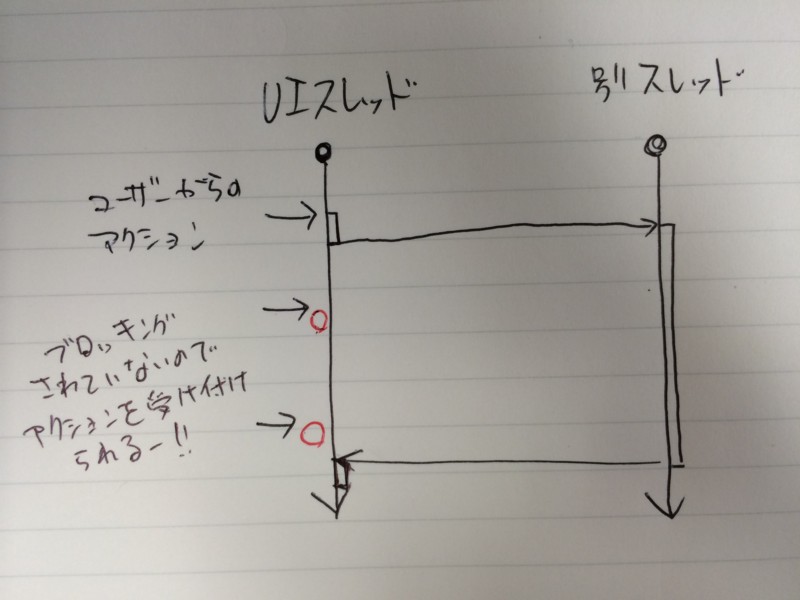 UIスレッド
別スレッド
ユーザーからの
アクション
ブロッキング
されていないので
アクションを受け付け
られるー!!